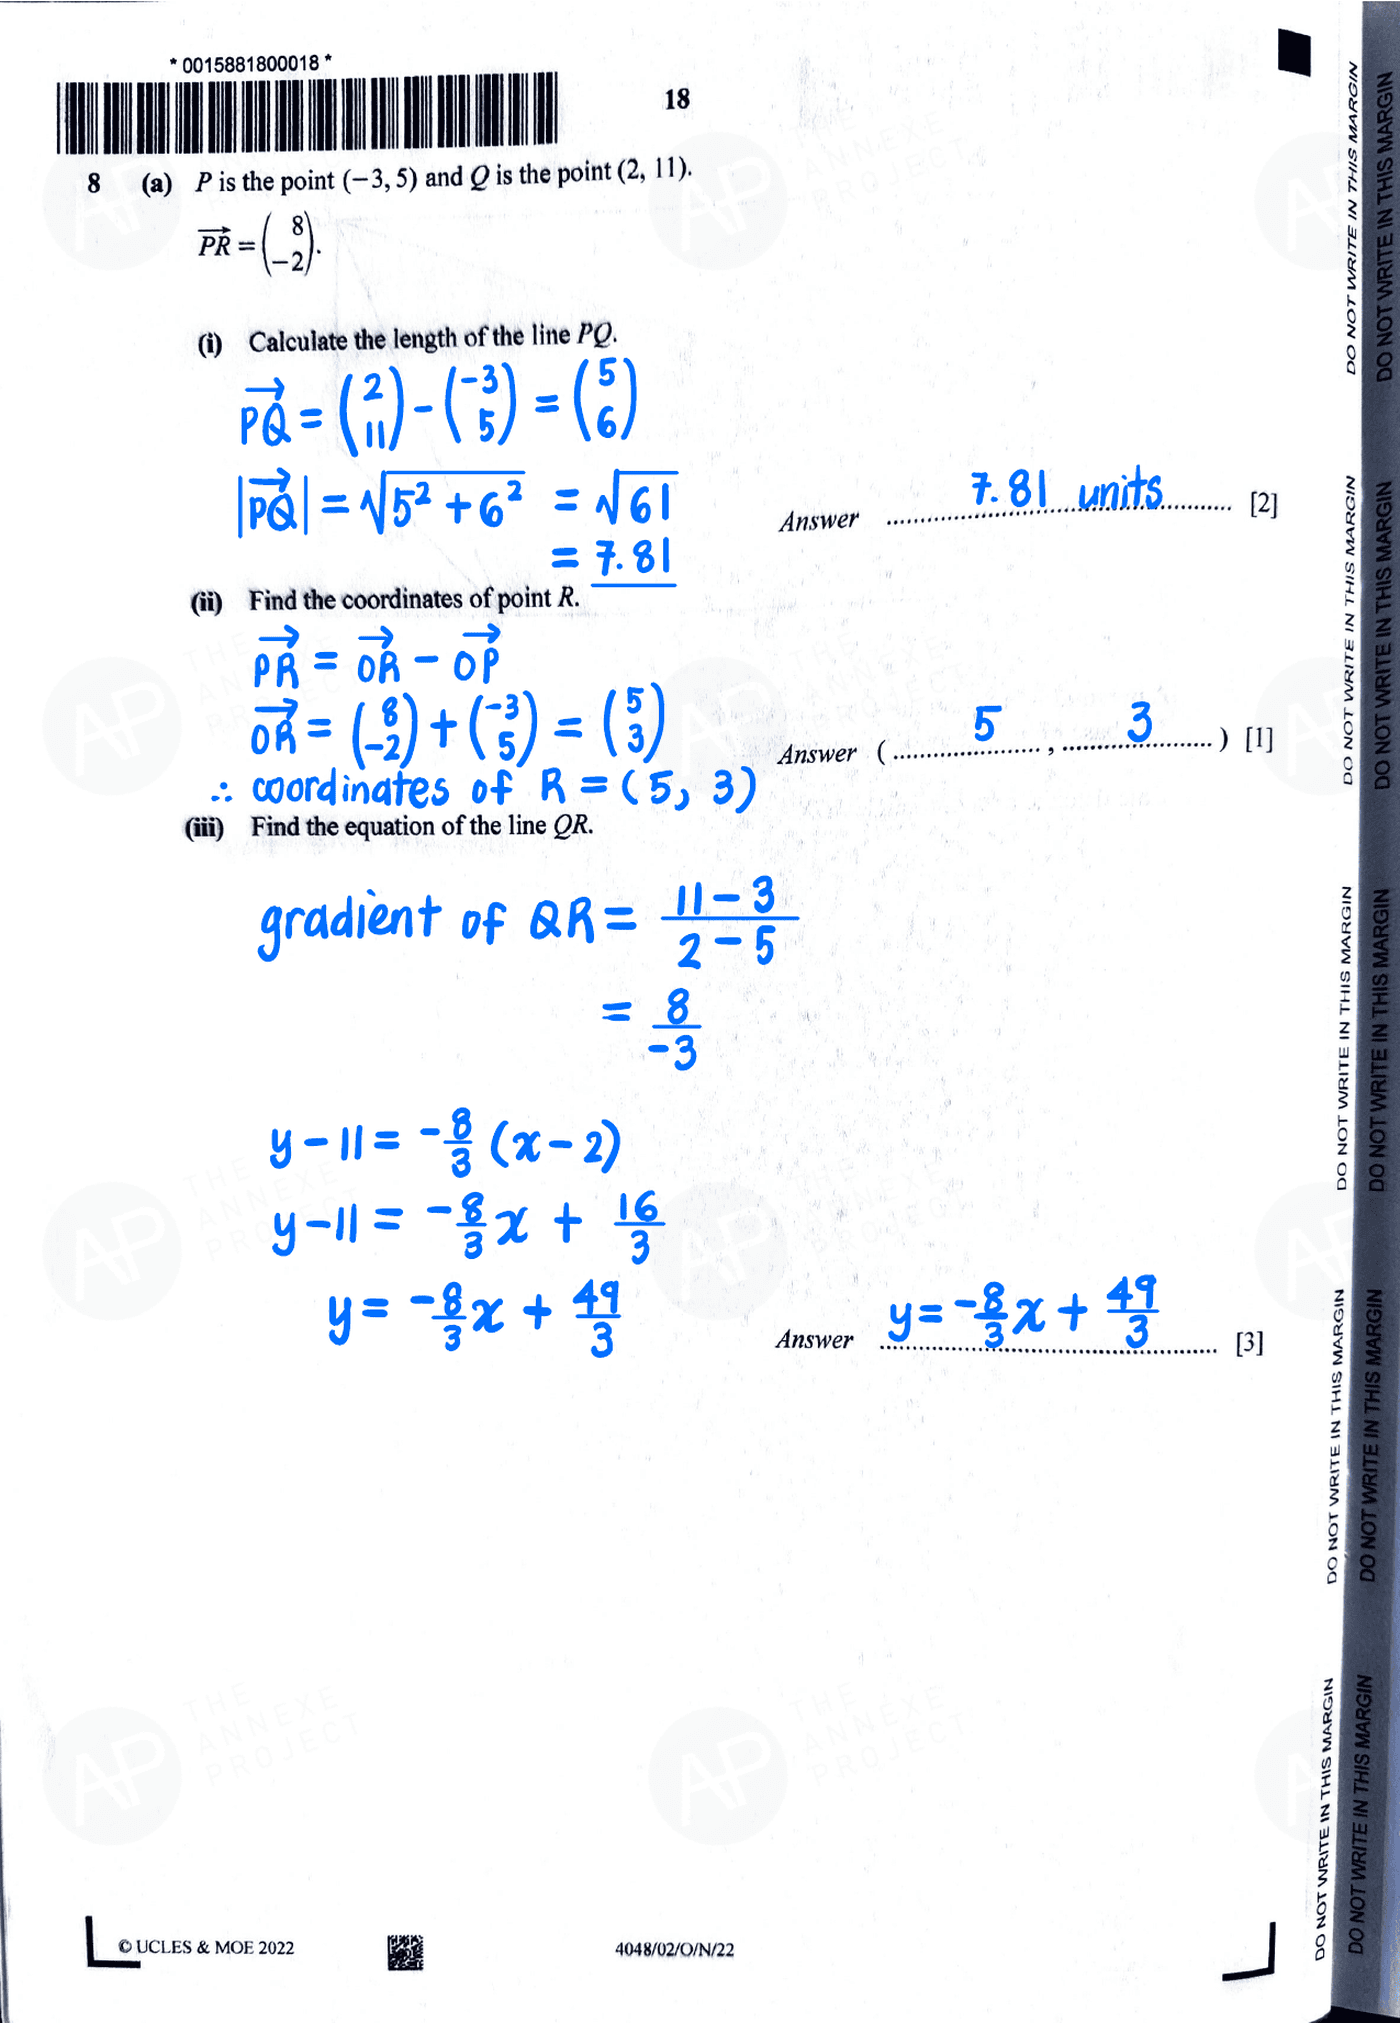 * 0015881800018 *
18
8 (a) P is the point (−3, 5) and Q is the point (2, 11).
PR→ = (8 −2).
(i) Calculate the length of the line PQ.
PQ→ = (2 11) − (−3 5) = (5 6)
|PQ→| = √5² + 6² = √61
= 7.81
Answer 7.81 units [2]
(ii) Find the coordinates of point R.
PR→ = OR→ − OP→
OR→ = (8 −2) + (−3 5) = (5 3)
Answer ( 5 , 3 ) [1]
∴ coordinates of R = (5, 3)
(iii) Find the equation of the line QR.
gradient of QR = 11 − 3 / 2 − 5
= 8/−3
y − 11 = −8/3 (x − 2)
y − 11 = −8/3 x + 16/3
y = −8/3 x + 49/3
Answer y = −8/3 x + 49/3 [3]
© UCLES & MOE 2022
4048/02/O/N/22
DO NOT WRITE IN THIS MARGIN
DO NOT WRITE IN THIS MARGIN
DO NOT WRITE IN THIS MARGIN
DO NOT WRITE IN THIS MARGIN
DO NOT WRITE IN THIS MARGIN
DO NOT WRITE IN THIS MARGIN
DO NOT WRITE IN THIS MARGIN
DO NOT WRITE IN THIS MARGIN
DO NOT WRITE IN THIS MARGIN
DO NOT WRITE IN THIS MARGIN
AP
THE
ANNEXE
PROJECT